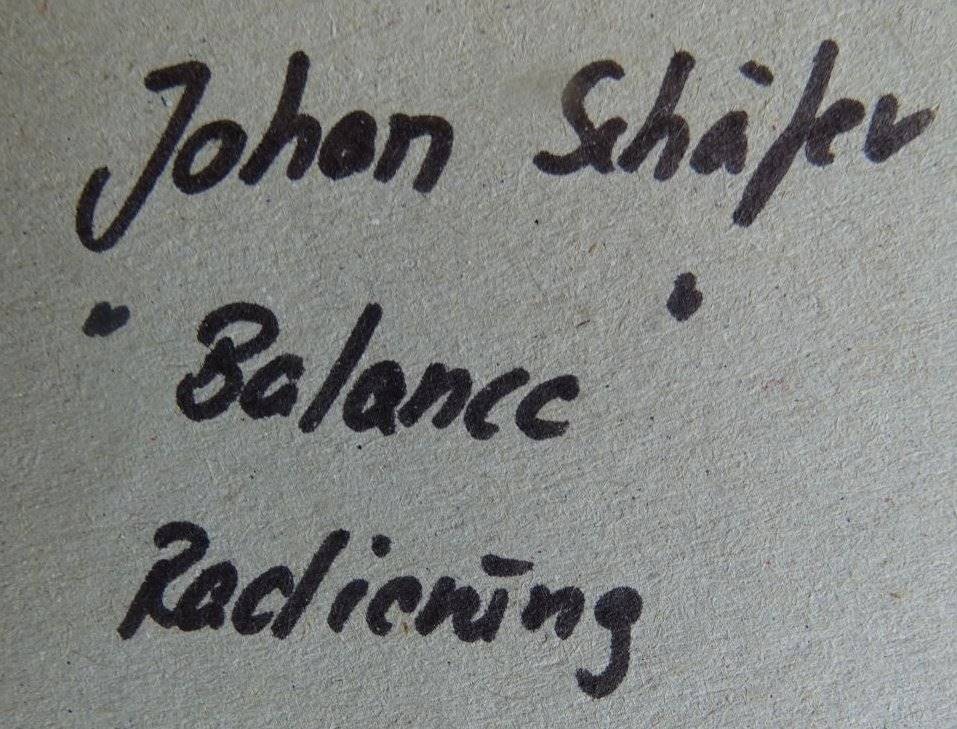 Johan Schäfer
"Balance"
Radierung